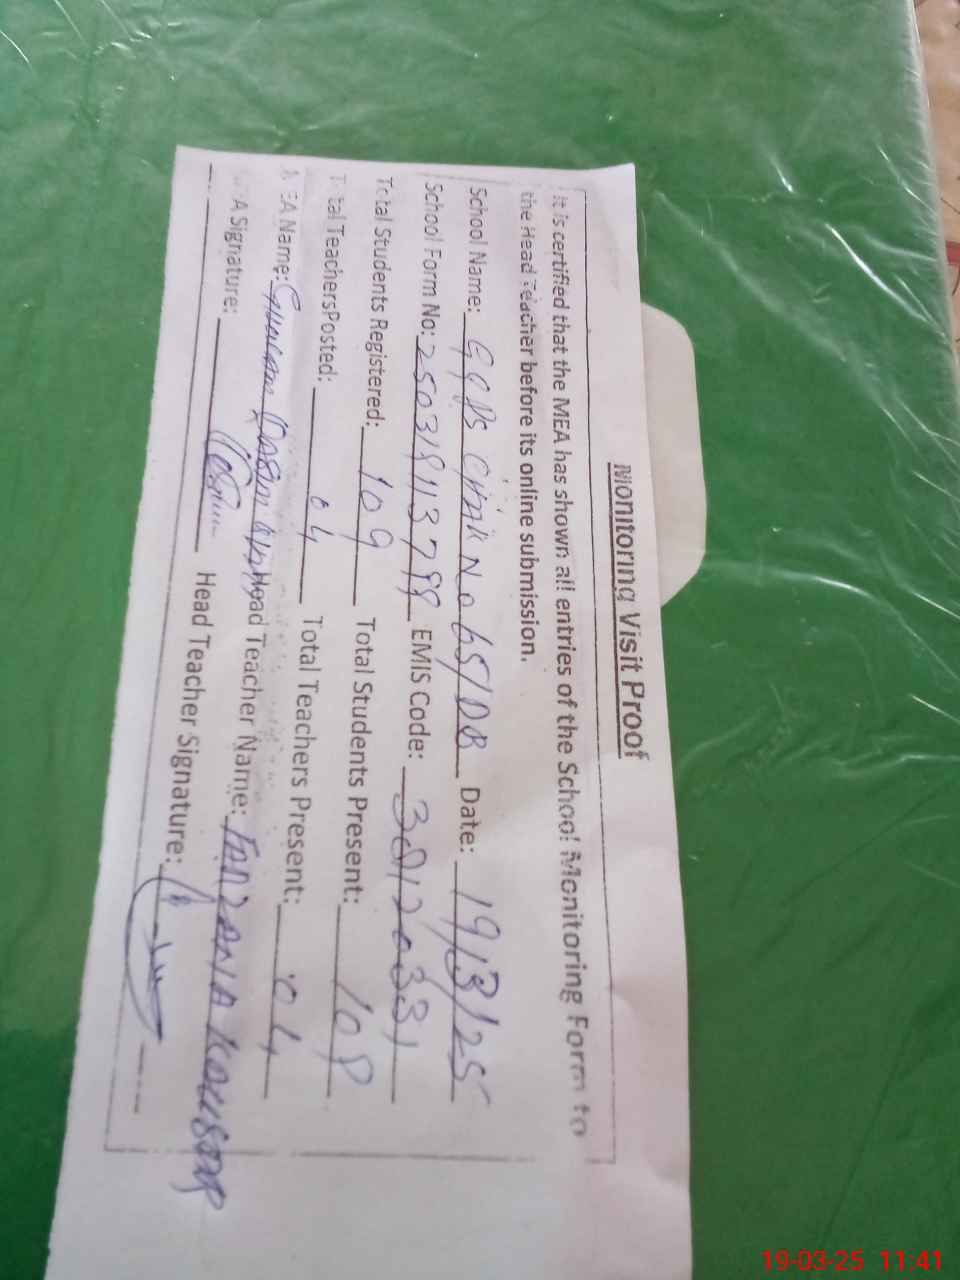 Monitoring Visit Proof
It is certified that the MEA has shown all entries of the School Monitoring Form to
the Head Teacher before its online submission.
School Name: GGPS Chak No 65/DB Date: 19/3/25
School Form No: EMIS Code:
Total Students Registered: 109 Total Students Present: 108
Total TeachersPosted: 04 Total Teachers Present: 04
MEA Name: Head Teacher Name: FARZANA KAUSAR
MEA Signature: Head Teacher Signature:
19-03-25 11:41